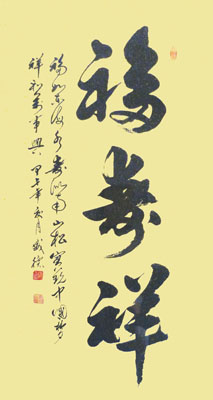 福寿祥
福如东海水寿比南山松实现中国梦
祥和万事兴 甲午年